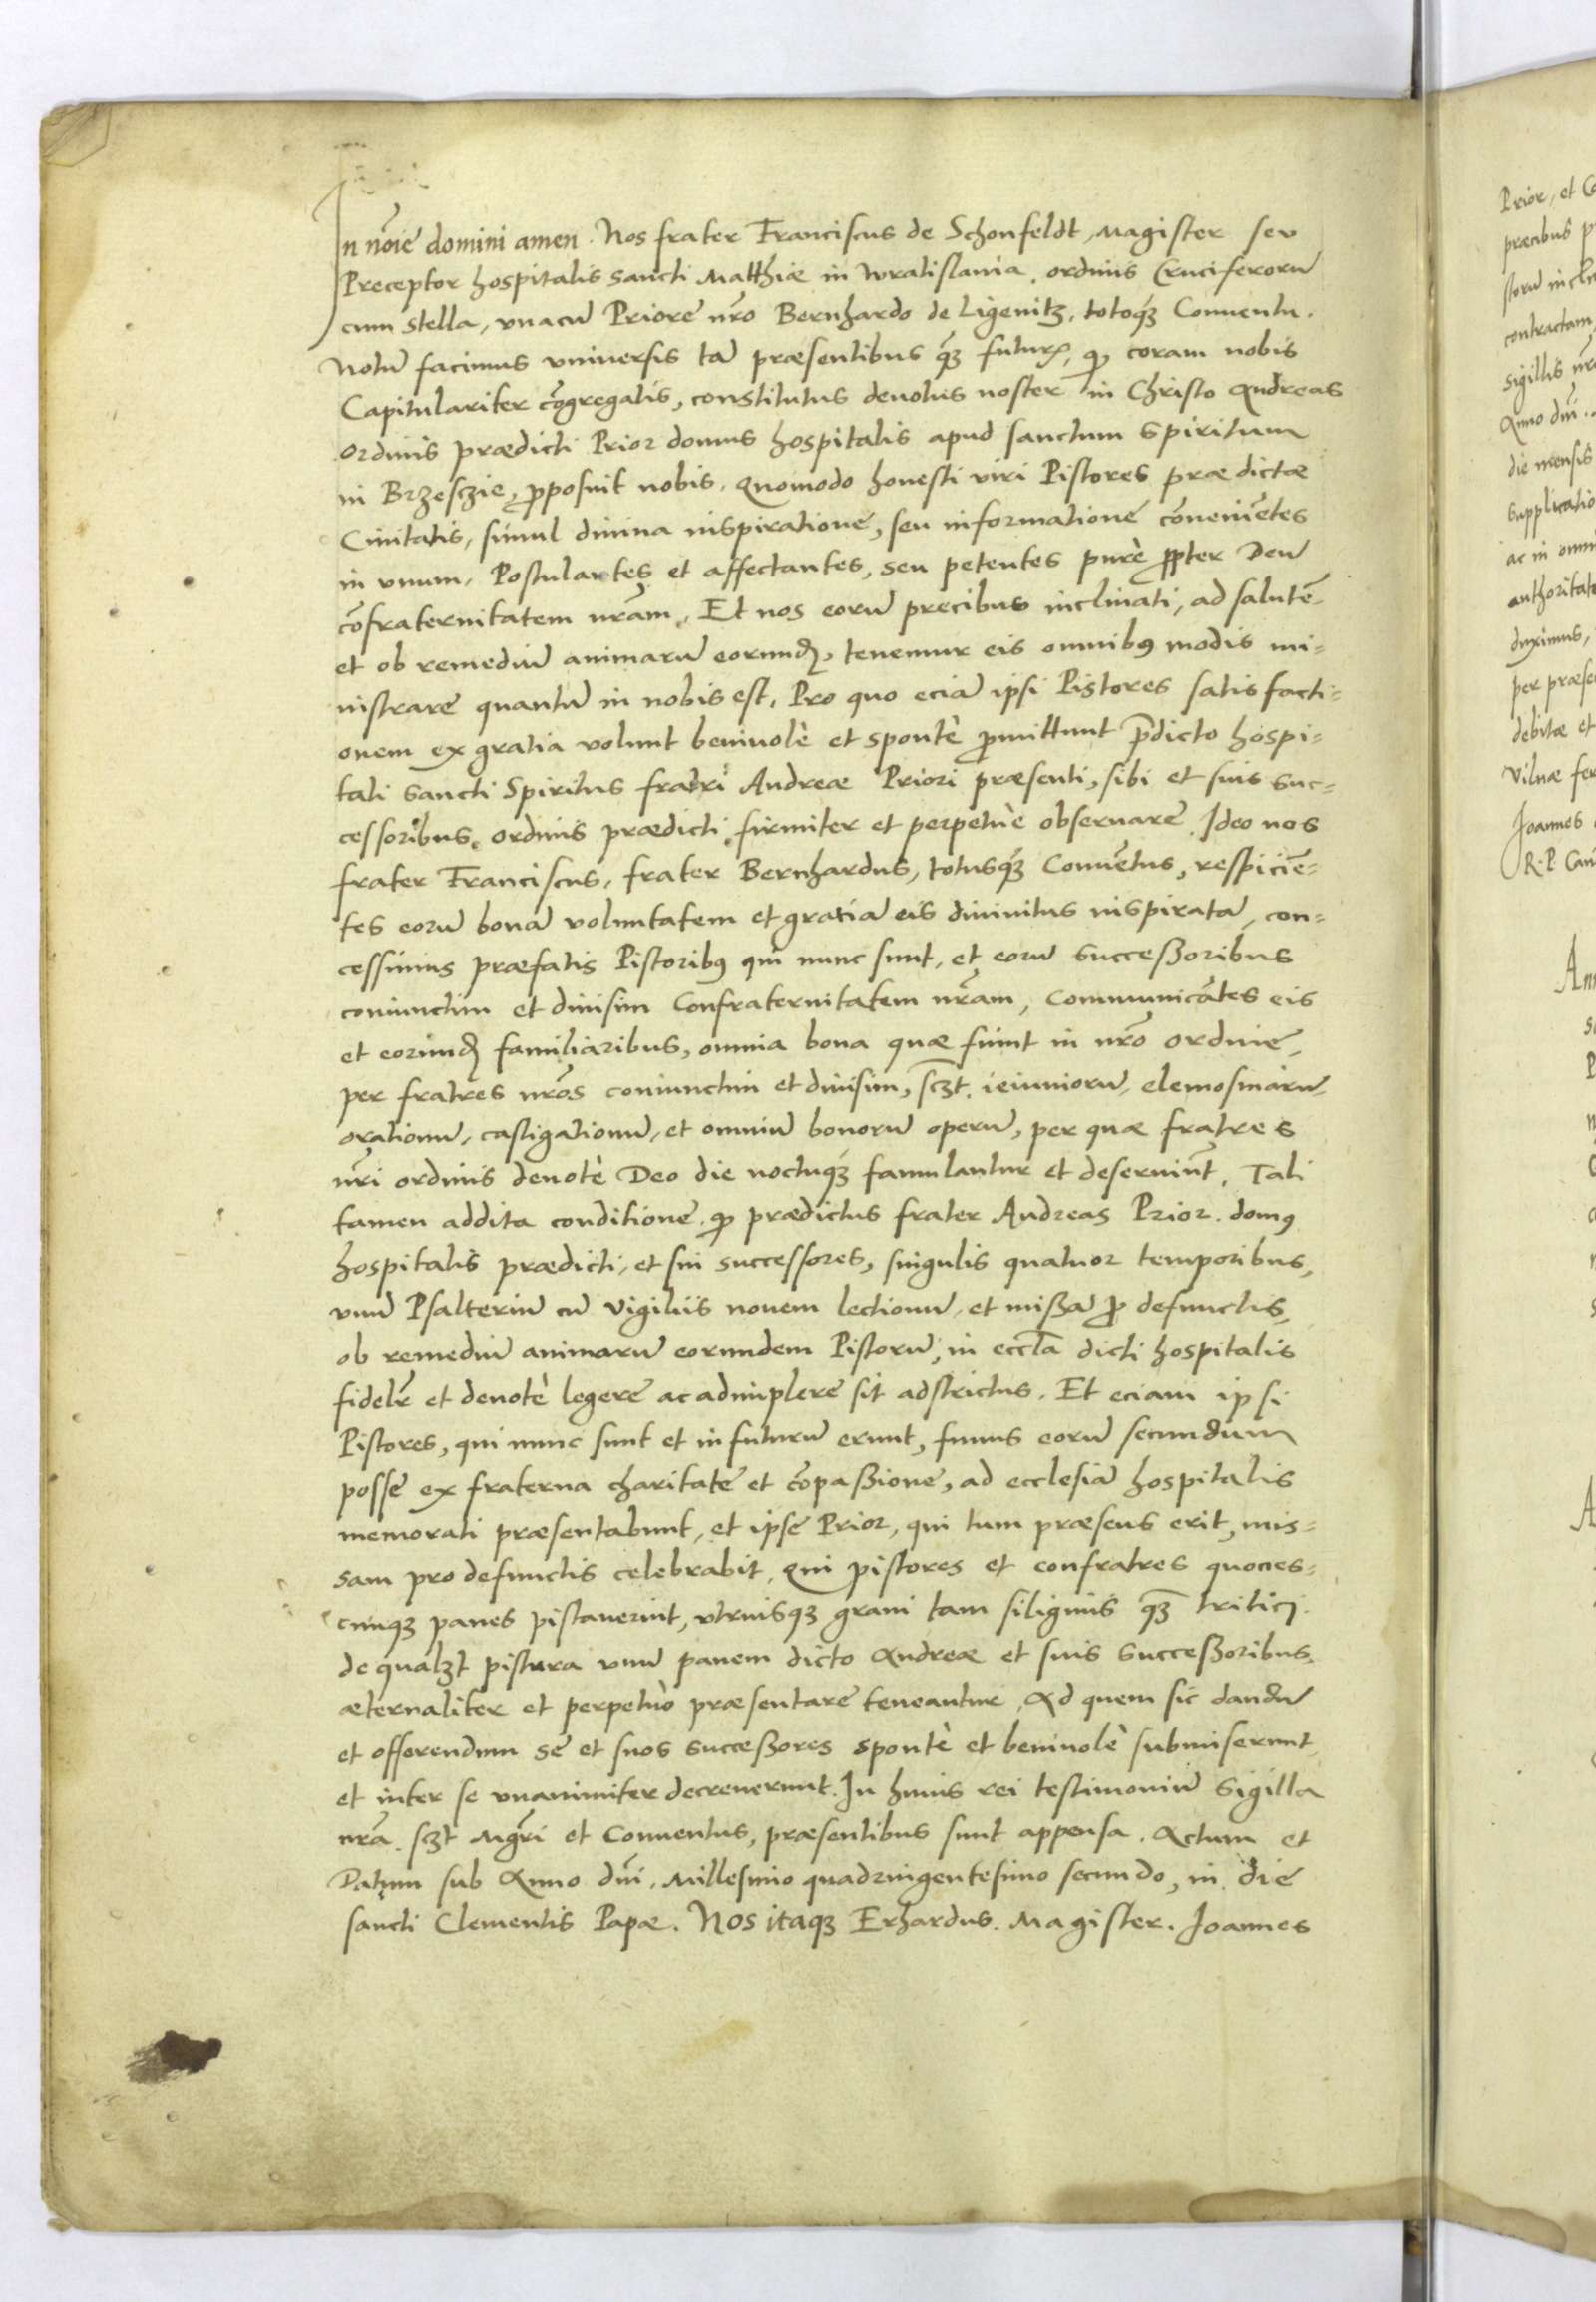 In nõie domini amen. Nos frater Franciscus de Schonfeldt, Magister seu
Preceptor hospitalis sancti Matthiæ in Wratislavia, ordinis Cruciferorũ
cum stella, vnacũ Priore nr̃o Bernhardo de Ligenitz, totoq́ꝫ Conuentu.
Notũ facimus vniuersis tã præsentibus q̃ꝫ futurꝫ, ꝙ coram nobis
Capitulariter cõgregatis, constitutus deuotus noster in Christo Andreas
ordinis prædicti Prior domus hospitalis apud sanctum spiritum
in Brzesczie, ꝓposuit nobis. Quomodo honesti viri Pistores præ dictæ
Ciuitatis, simul diuina inspiratione, seu informatione cõueniẽtes
in vnum, Postulantes et affectantes, seu petentes purè ꝓpter Deũ
cõfraternitatem nr̃am, Et nos eorũ precibus inclinati, ad salutẽ
et ob remediũ animarũ eorundꝫ, tenemur eis omnibꝰ modis mi=
nistrare quantũ in nobis est, Pro quo eciã ipsi Pistores satisfacti=
onem ex gratia volunt beniuolè et spontè ꝓmittunt p̃dicto hospi=
tali Sancti Spiritus fratri Andreæ Priori præsenti, sibi et suis suc=
cessoribus, ordinis prædicti, firmiter et perpetuè obseruare. Ideo nos
frater Franciscus, frater Bernhardus, totusq́ꝫ Conuẽtus, respiciẽ=
tes eorũ bonã voluntatem et gratiã eis diuinitus inspiratã, con=
cessimus præfatis Pistoribꝰ qui nunc sunt, et eorũ successoribus
coniunctim et diuisim Confraternitatem nr̃am, Communicãtes eis
et eorundꝫ familiaribus, omnia bona quæ fiunt in nr̃o ordine,
per fratres nr̃os coniunctim et diuisim, scꝫt. ieiuniorũ, elemosinarũ,
orationũ, castigationũ, et omniũ bonorũ operũ, per quæ fratres
nr̃i ordinis deuotè Deo die noctuq́ꝫ famulantur et deseruiũt. Tali
tamen addita conditione, ꝙ prædictus frater Andreas Prior. domꝰ
hospitalis prædicti, et sui successores, singulis quatuor temporibus,
vnũ Psalteriũ cũ Vigiliis nouem lectionũ, et missã ꝓ defunctis,
ob remediũ animarũ eorundem Pistorũ, in eccl̃a dicti hospitalis
fidelr̃ et deuotè legere ac adimplere sit adstrictus. Et eciam ipsi
Pistores, qui nunc sunt et in futurũ erunt, funus eorũ secundum
posse ex fraterna charitate et cõpassione, ad ecclesiã hospitalis
memorati præsentabunt, et ipse Prior, qui tum præsens erit, mis=
sam pro defunctis celebrabit. Qui pistores et confratres quocies=
cunqꝫ panes pistauerint, vtriusqꝫ grani tam siliginis q̃ꝫ tritici.
de qualꝫt pistura vnũ panem dicto Andreæ et suis successoribus.
æternaliter et perpetuò præsentare teneantur. Ad quem sic dandũ
et offerendum se et suos successores spontè et beniuolè submiserunt,
et inter se vnanimiter decreuerunt. In huius rei testimoniũ sigilla
nr̃a. scꝫt Mgr̃i et Conuentus, præsentibus sunt appensa. Actum et
Datum sub Anno dñi. Millesimo quadringentesimo secundo, in die
sancti Clementis Papæ. Nos itaqꝫ Erhardus. Magister. Joannes
Prior, et
precibus
sigillis
Anno dñi.
die mensis
supplicatio
ac in
debitæ et
Vilnæ
Joannes